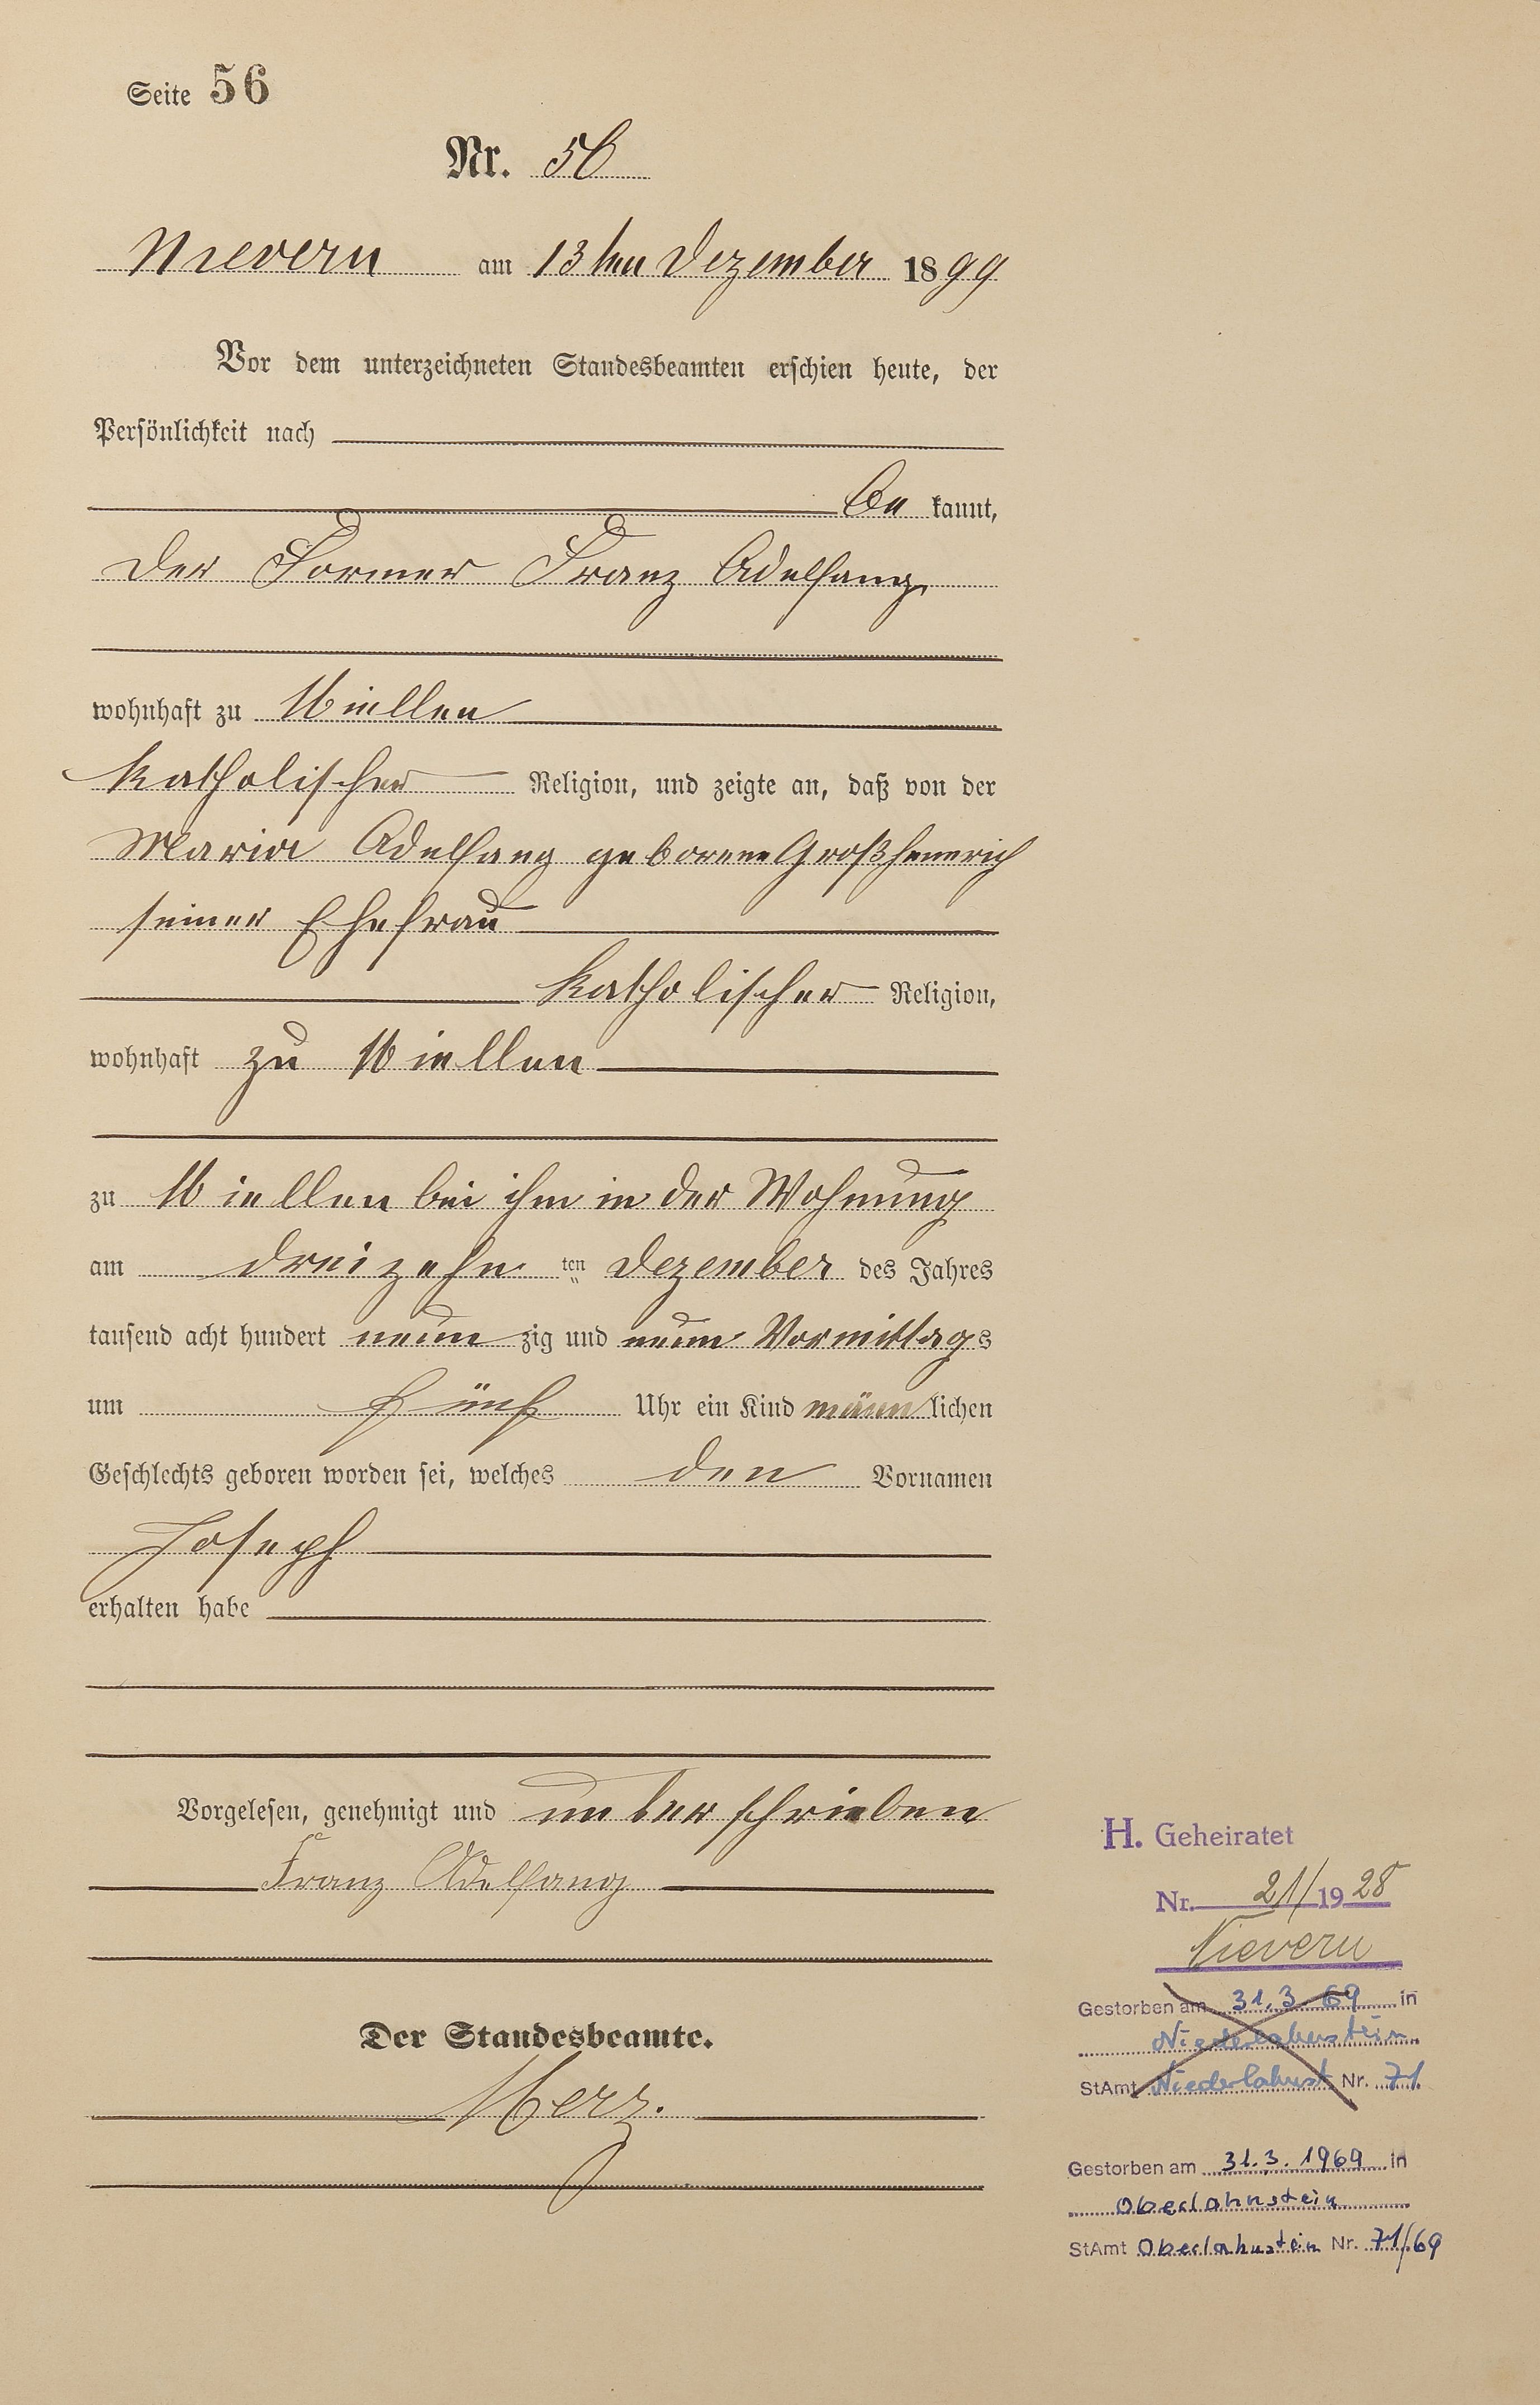 Seite 56
Nr. 56
Nievern am 13ten Dezember 1899
Vor dem unterzeichneten Standesbeamten erschien heute, der
Persönlichkeit nach
be kannt,
der Former Franz Adelfang
wohnhaft zu Miellen
katholischer Religion, und zeigte an, daß von der
Maria Adelfang geborene Großhennrich
seiner Ehefrau
katholischer Religion,
wohnhaft zu Miellen
zu Miellen bei ihm in der Wohnung
am dreizehn ten Dezember des Jahres
tausend acht hundert neun zig und neun Vormittags
um fünf Uhr ein Kind männ lichen
Geschlechts geboren worden sei, welches den Vornamen
Joseph
erhalten habe
Vorgelesen, genehmigt und unterschrieben
Franz Adelfang
Der Standesbeamte.
Merz.
H. Geheiratet
Nr. 21/1928
Nievern
Gestorben am 31.3 69 in
Niederlahnstein
StAmt Niederlahnst Nr. 71
Gestorben am 31.3.1969 in
Oberlahnstein
StAmt Oberlahnstein Nr. 71/69